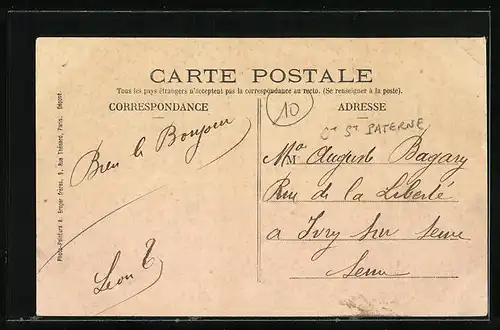 CARTE POSTALE
Tous les pays étrangers n'acceptent pas la correspondance au recto. (Se renseigner à la poste).
CORRESPONDANCE
ADRESSE
10
Ct St PATERNE
Bien le Bonjour
Léon
Auguste Bagary
Rue de la Liberté
a Ivry sur Seine
Seine
Photo-Peinture A. Breger frères, 9, Rue Thénard, Paris. Déposé.